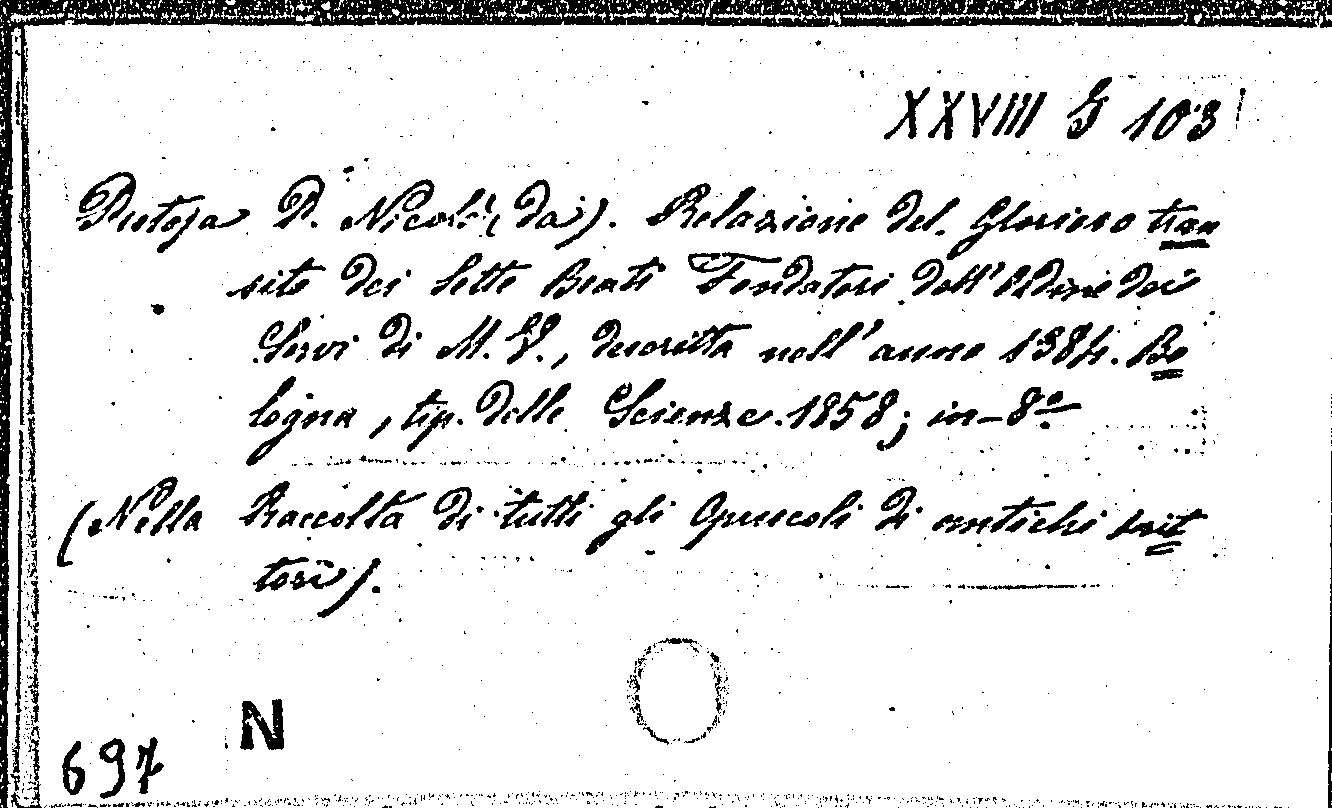 XXVIII G 103
Pistoja P. Nicolò (da). Relazione del Glorioso tran=
sito dei Sette Beati Fondatori dell'Ordine dei
Servi di M. V., descritta nell'anno 1384. Bo=
logna, tip. delle Scienze. 1858; in-8º
(Nella Raccolta di tutti gli Opuscoli di antichi scrit=
tori).
N
697